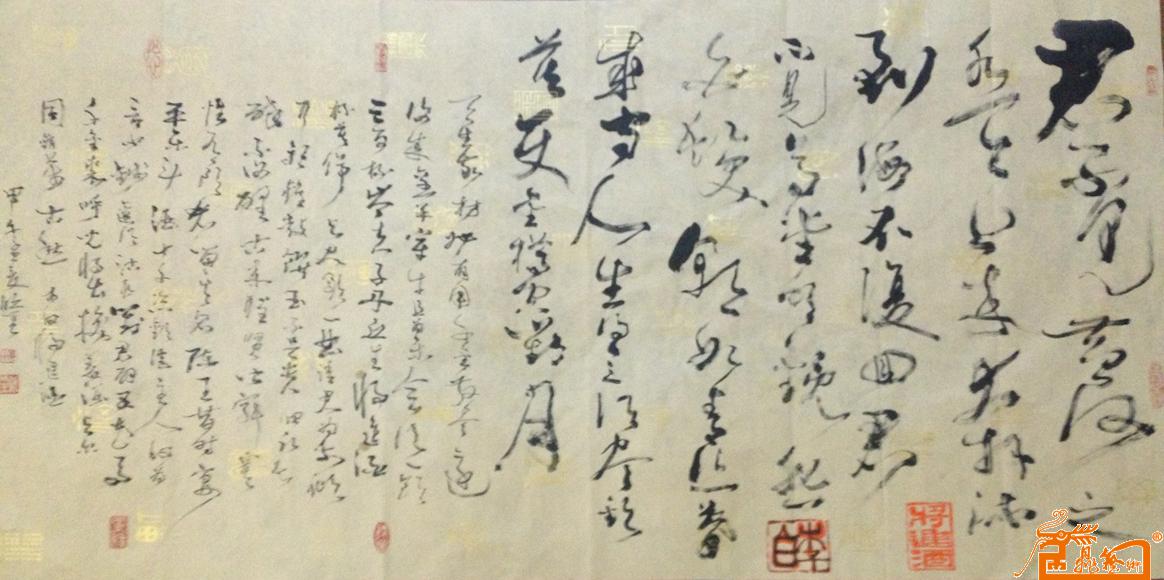 君不见黄河之
水天上来奔流
到海不復回君
不見高堂明鏡悲
白髮朝如青丝暮
成雪人生得意須尽欢
莫使金樽空對月
天生我材必有用千金散尽還
復来烹羊宰牛且為乐会須一飲
三百杯岑夫子丹丘生将進酒
杯莫停与君歌一曲请君為我傾
耳聽鐘鼓饌玉不足贵但願長
醉不復醒古来聖贤皆寂寞
惟有飲者留其名陈王昔时宴
平乐斗酒十千恣歡谑主人何为
言少钱徑须沽取對君酌五花马
千金裘呼兒将出换美酒与尔
同銷萬古愁 李白將進酒
甲午
将進酒
李白